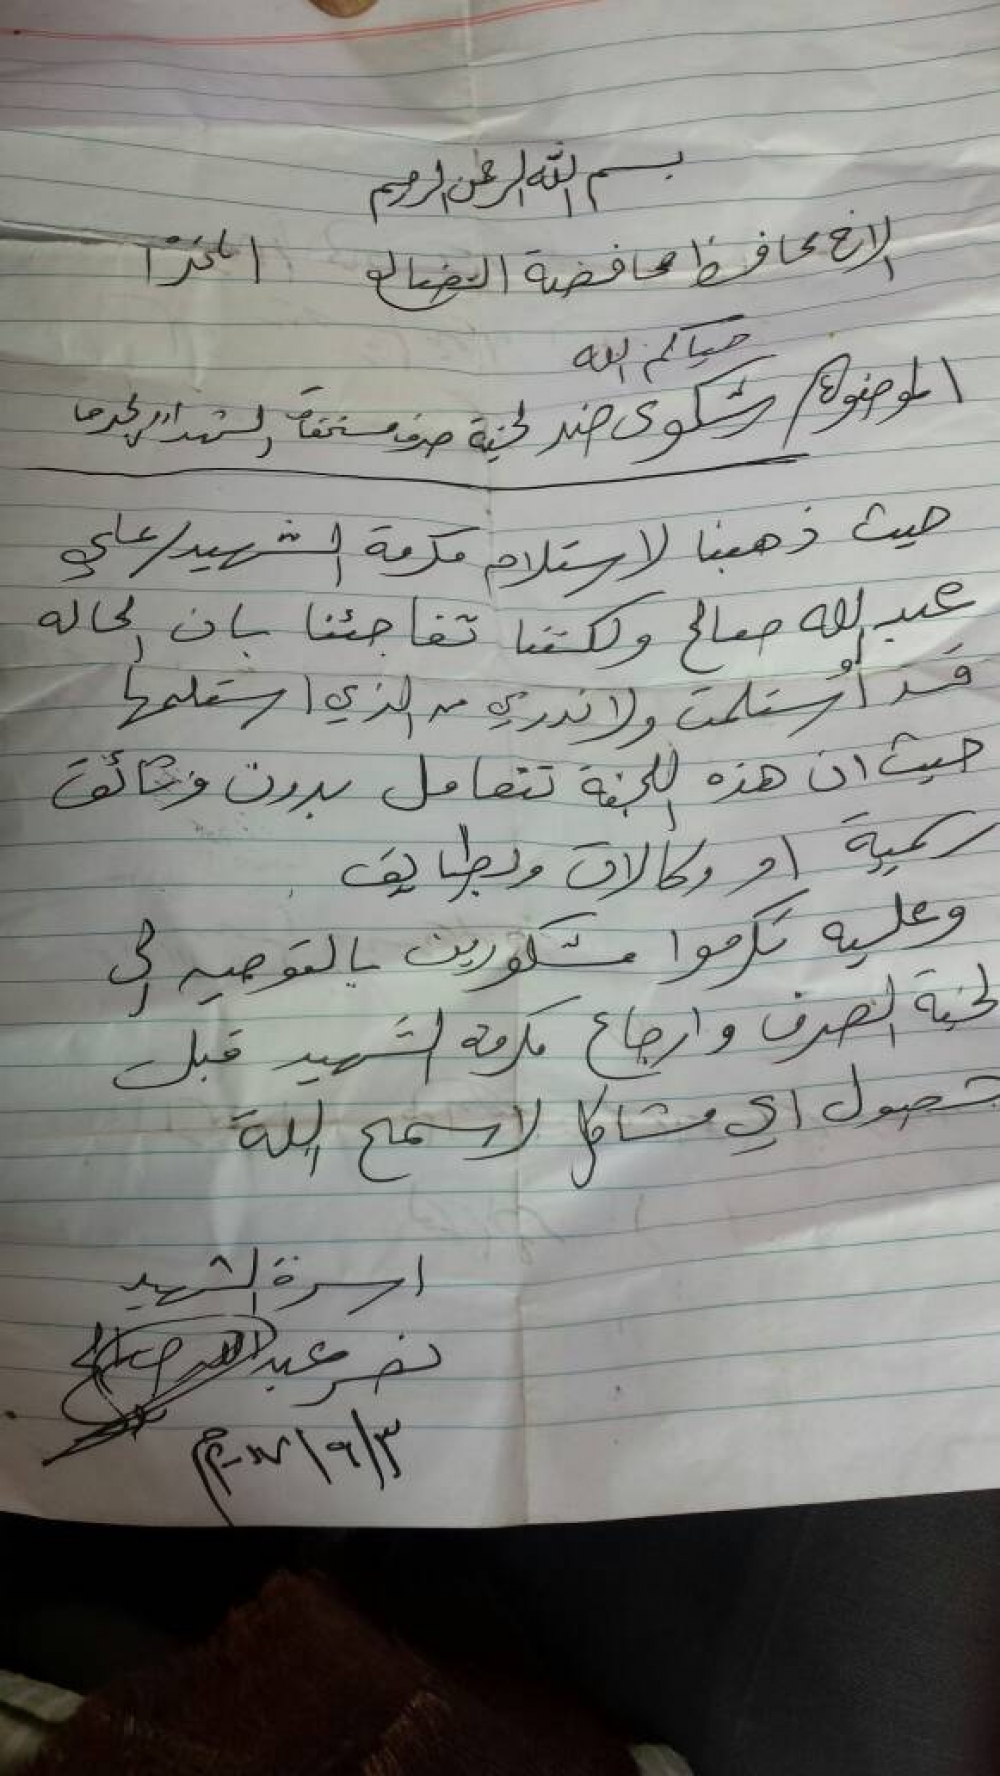 بسم الله الرحمن الرحيم
الاخ محافظ محافضة الضالع المحترم
حياكم الله
الموضوع/ شكوى ضد لجنة صرف مستحقات الشهداء والجرحا
حيث ذهبنا لاستلام مكرمة الشهيد/علي
عبدالله صالح ولكننا تفاجئنا بان الحاله
قد أُستلمت ولاندري من الذي استلمها
حيث ان هذه اللجنة تتعامل بدون وثائق
رسمية او وكالات وبطايق
وعليه تكرموا مشكورين بالتوجيه الى
لجنة الصرف وارجاع مكرمة الشهيد قبل
حصول اي مشاكل لاسمح الله
اسرة الشهيد
نصر عبدالله صالح
٣/٩/